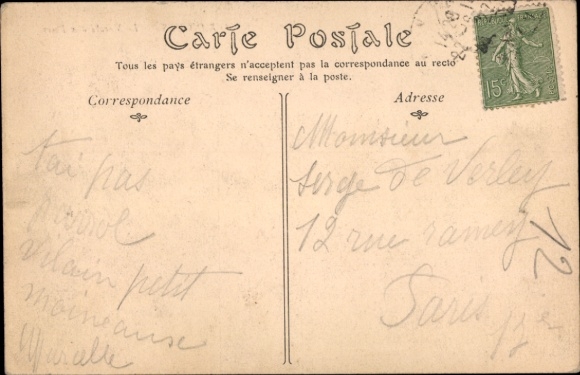 Carte Postale
Tous les pays étrangers n'acceptent pas la correspondance au recto
Se renseigner à la poste.
Correspondance
Adresse
tai pas
vilain petit
moineause
Marcelle
Monsieur
Serge de Verley
12 rue ramey
Paris
12
15c